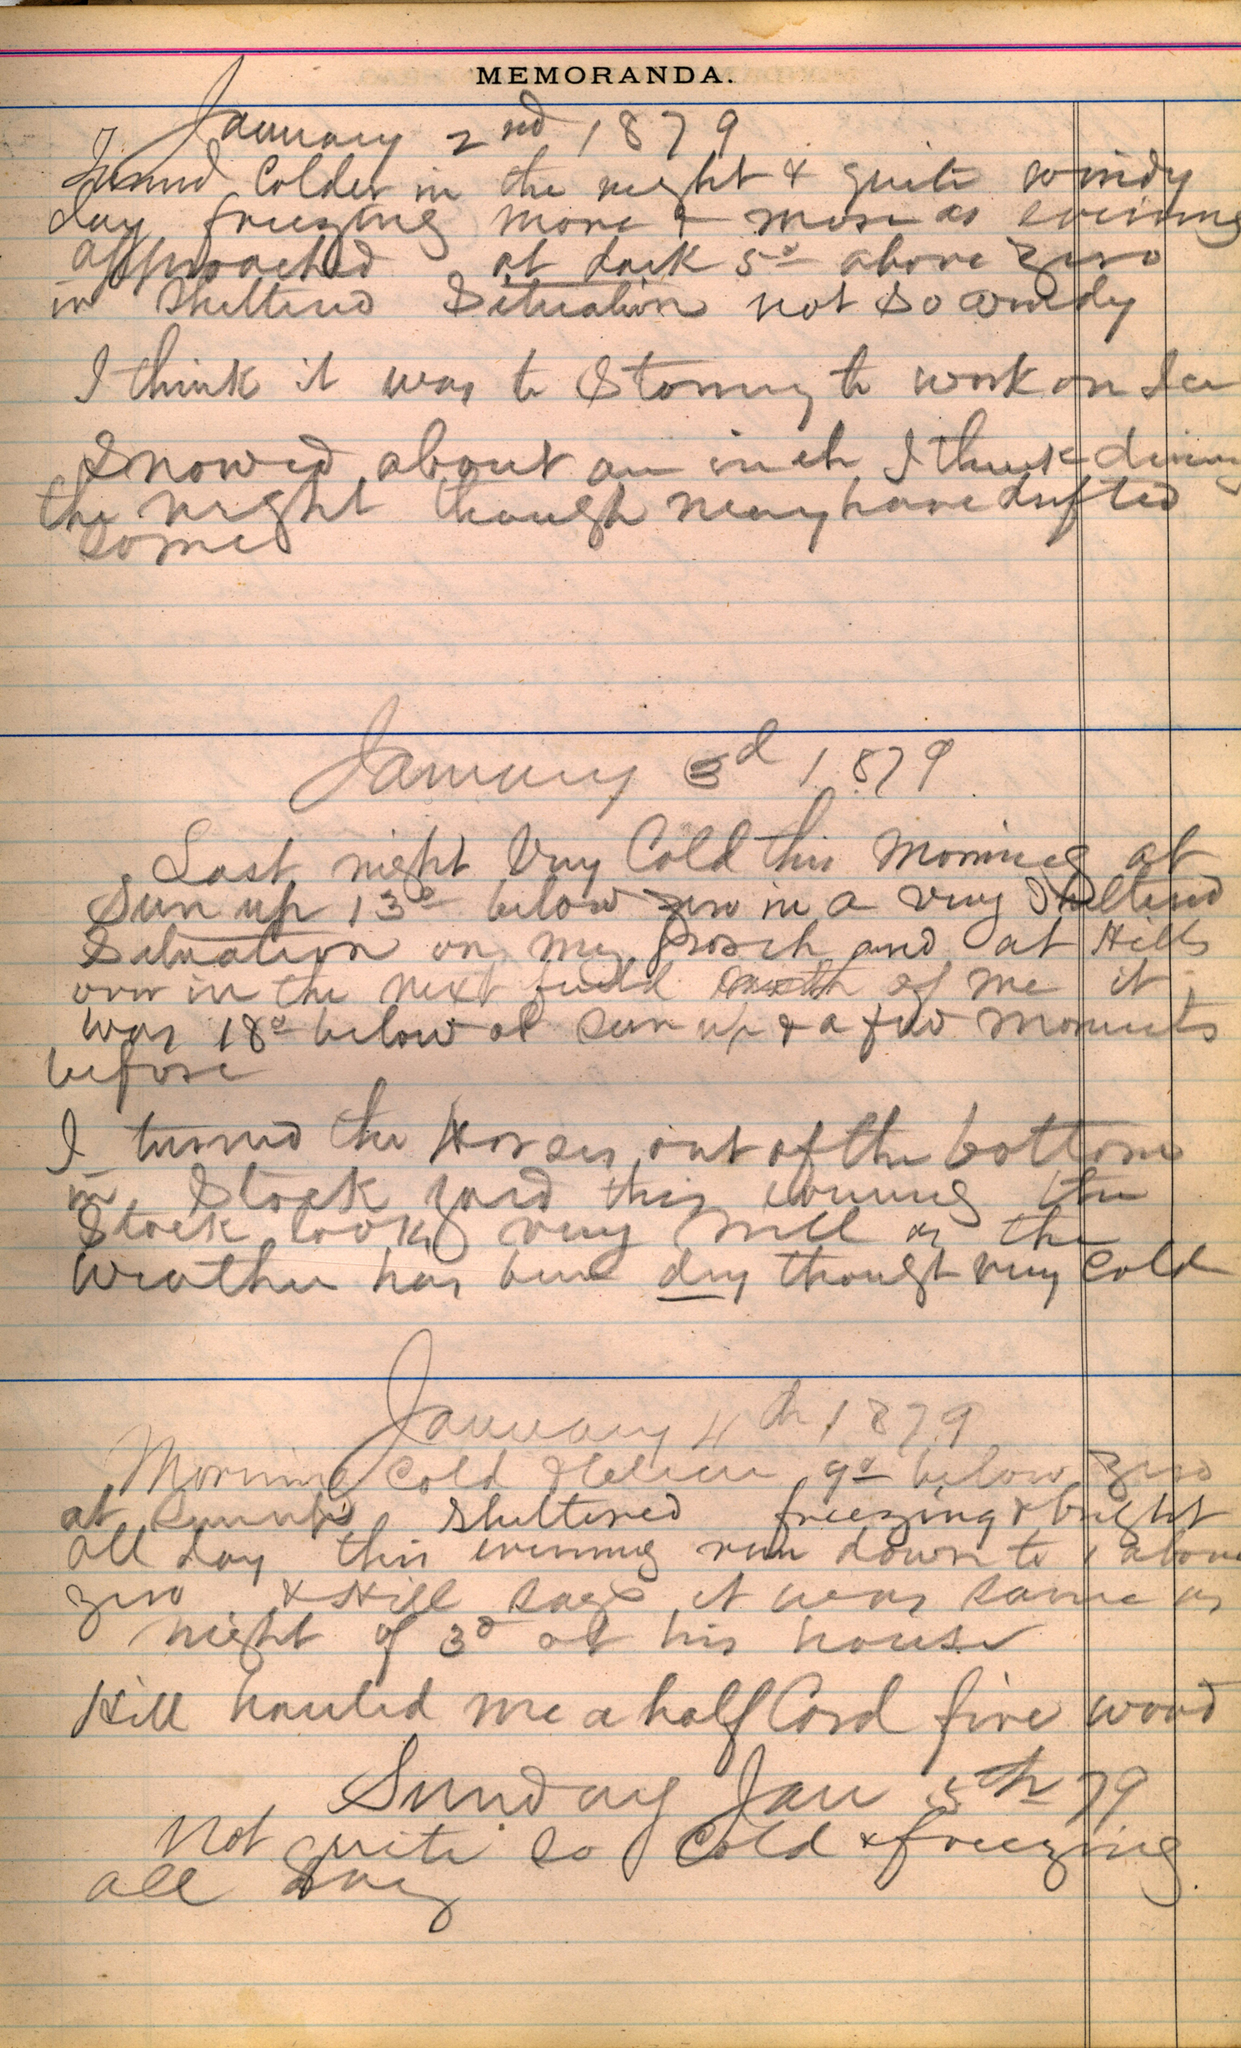 MEMORANDA.
January 2nd 1879
Turned Colder in the night & quite windy
day freezing more & more as evening
approached at dark 5° above zero
in Sheltered Situation not so windy
I think it was to Stormy to work on Ice
Snowed about an inch I think during
the night though may have drifted
some
January 3d 1879
Last night Very Cold this Morning at
Sun up 13° below zero in a very Sheltered
Situation on my porch and at Hills
over in the next field north of me it
was 18° below at sun up & a few moments
before
I turned the Horses out of the bottom
in Stock yard this evening the
Stock looks very well as the
Weather has been dry though very Cold
January 4th 1879
Morning Cold & Clear 9° below zero
at sunup Sheltered freezing & bright
all day this evening run down to 1 above
zero & Hill says it was same as
night of 3d at his house
Hill hauled me a half Cord fire wood
Sunday Jan 5th 79
Not quite so Cold & freezing
all day